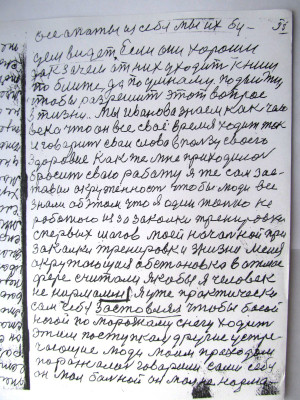 все опыты из себя мы их бу- 56
дем видет если они хороши
так зачем от них уходит к ним
по ближе, да по умнали подойти
чтобы разрешит этот вопрос
в жизни. Мы Иванова знаем как чело
века что он все своё время ходит так
и говорит свои слова в пользу своего
здоровье Как же мне приходилос
бросит свою работу я же сам зас
тавил окруженност чтобы люди все
знали об этом что я один только не
работою из за закалки тренировки
с первых шагов моей начатной при
закалки тренировки жизни меня
окружающая обстановка в атмос
фере считали якобы я человек
не нармалный Я уже практически
сам себя заставлял чтобы босой
ногой по морозному снегу ходит
этим поступкам другие встре
чающие люди моим преходам
поражалис говарили сами себе
он болной он мол не нормал